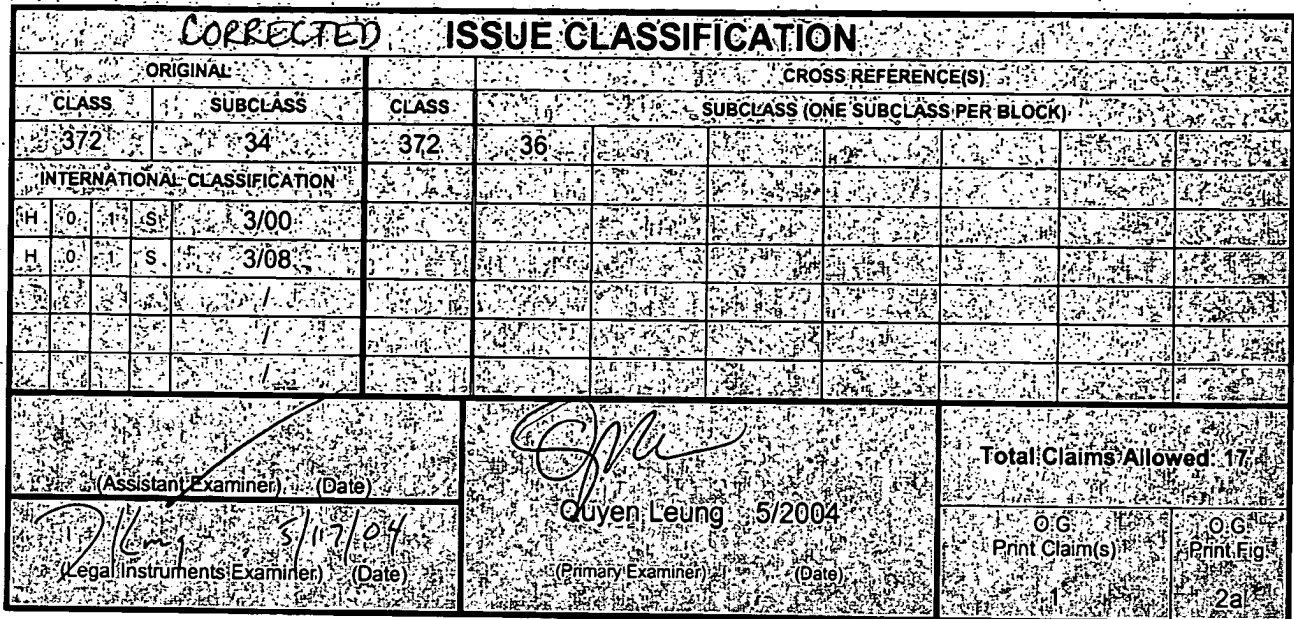 CORRECTED ISSUE CLASSIFICATION
ORIGINAL CROSS REFERENCE(S)
CLASS SUBCLASS CLASS SUBCLASS (ONE SUBCLASS PER BLOCK)
372 34 372 36
INTERNATIONAL CLASSIFICATION
H 0 1 S 3/00
H 0 1 S 3/08
/
/
/
(Assistant Examiner) (Date)
5/17/04
(Legal Instruments Examiner) (Date)
Quyen Leung 5/2004
(Primary Examiner) (Date)
Total Claims Allowed: 17
O.G.
Print Claim(s)
1
O.G.
Print Fig.
2a